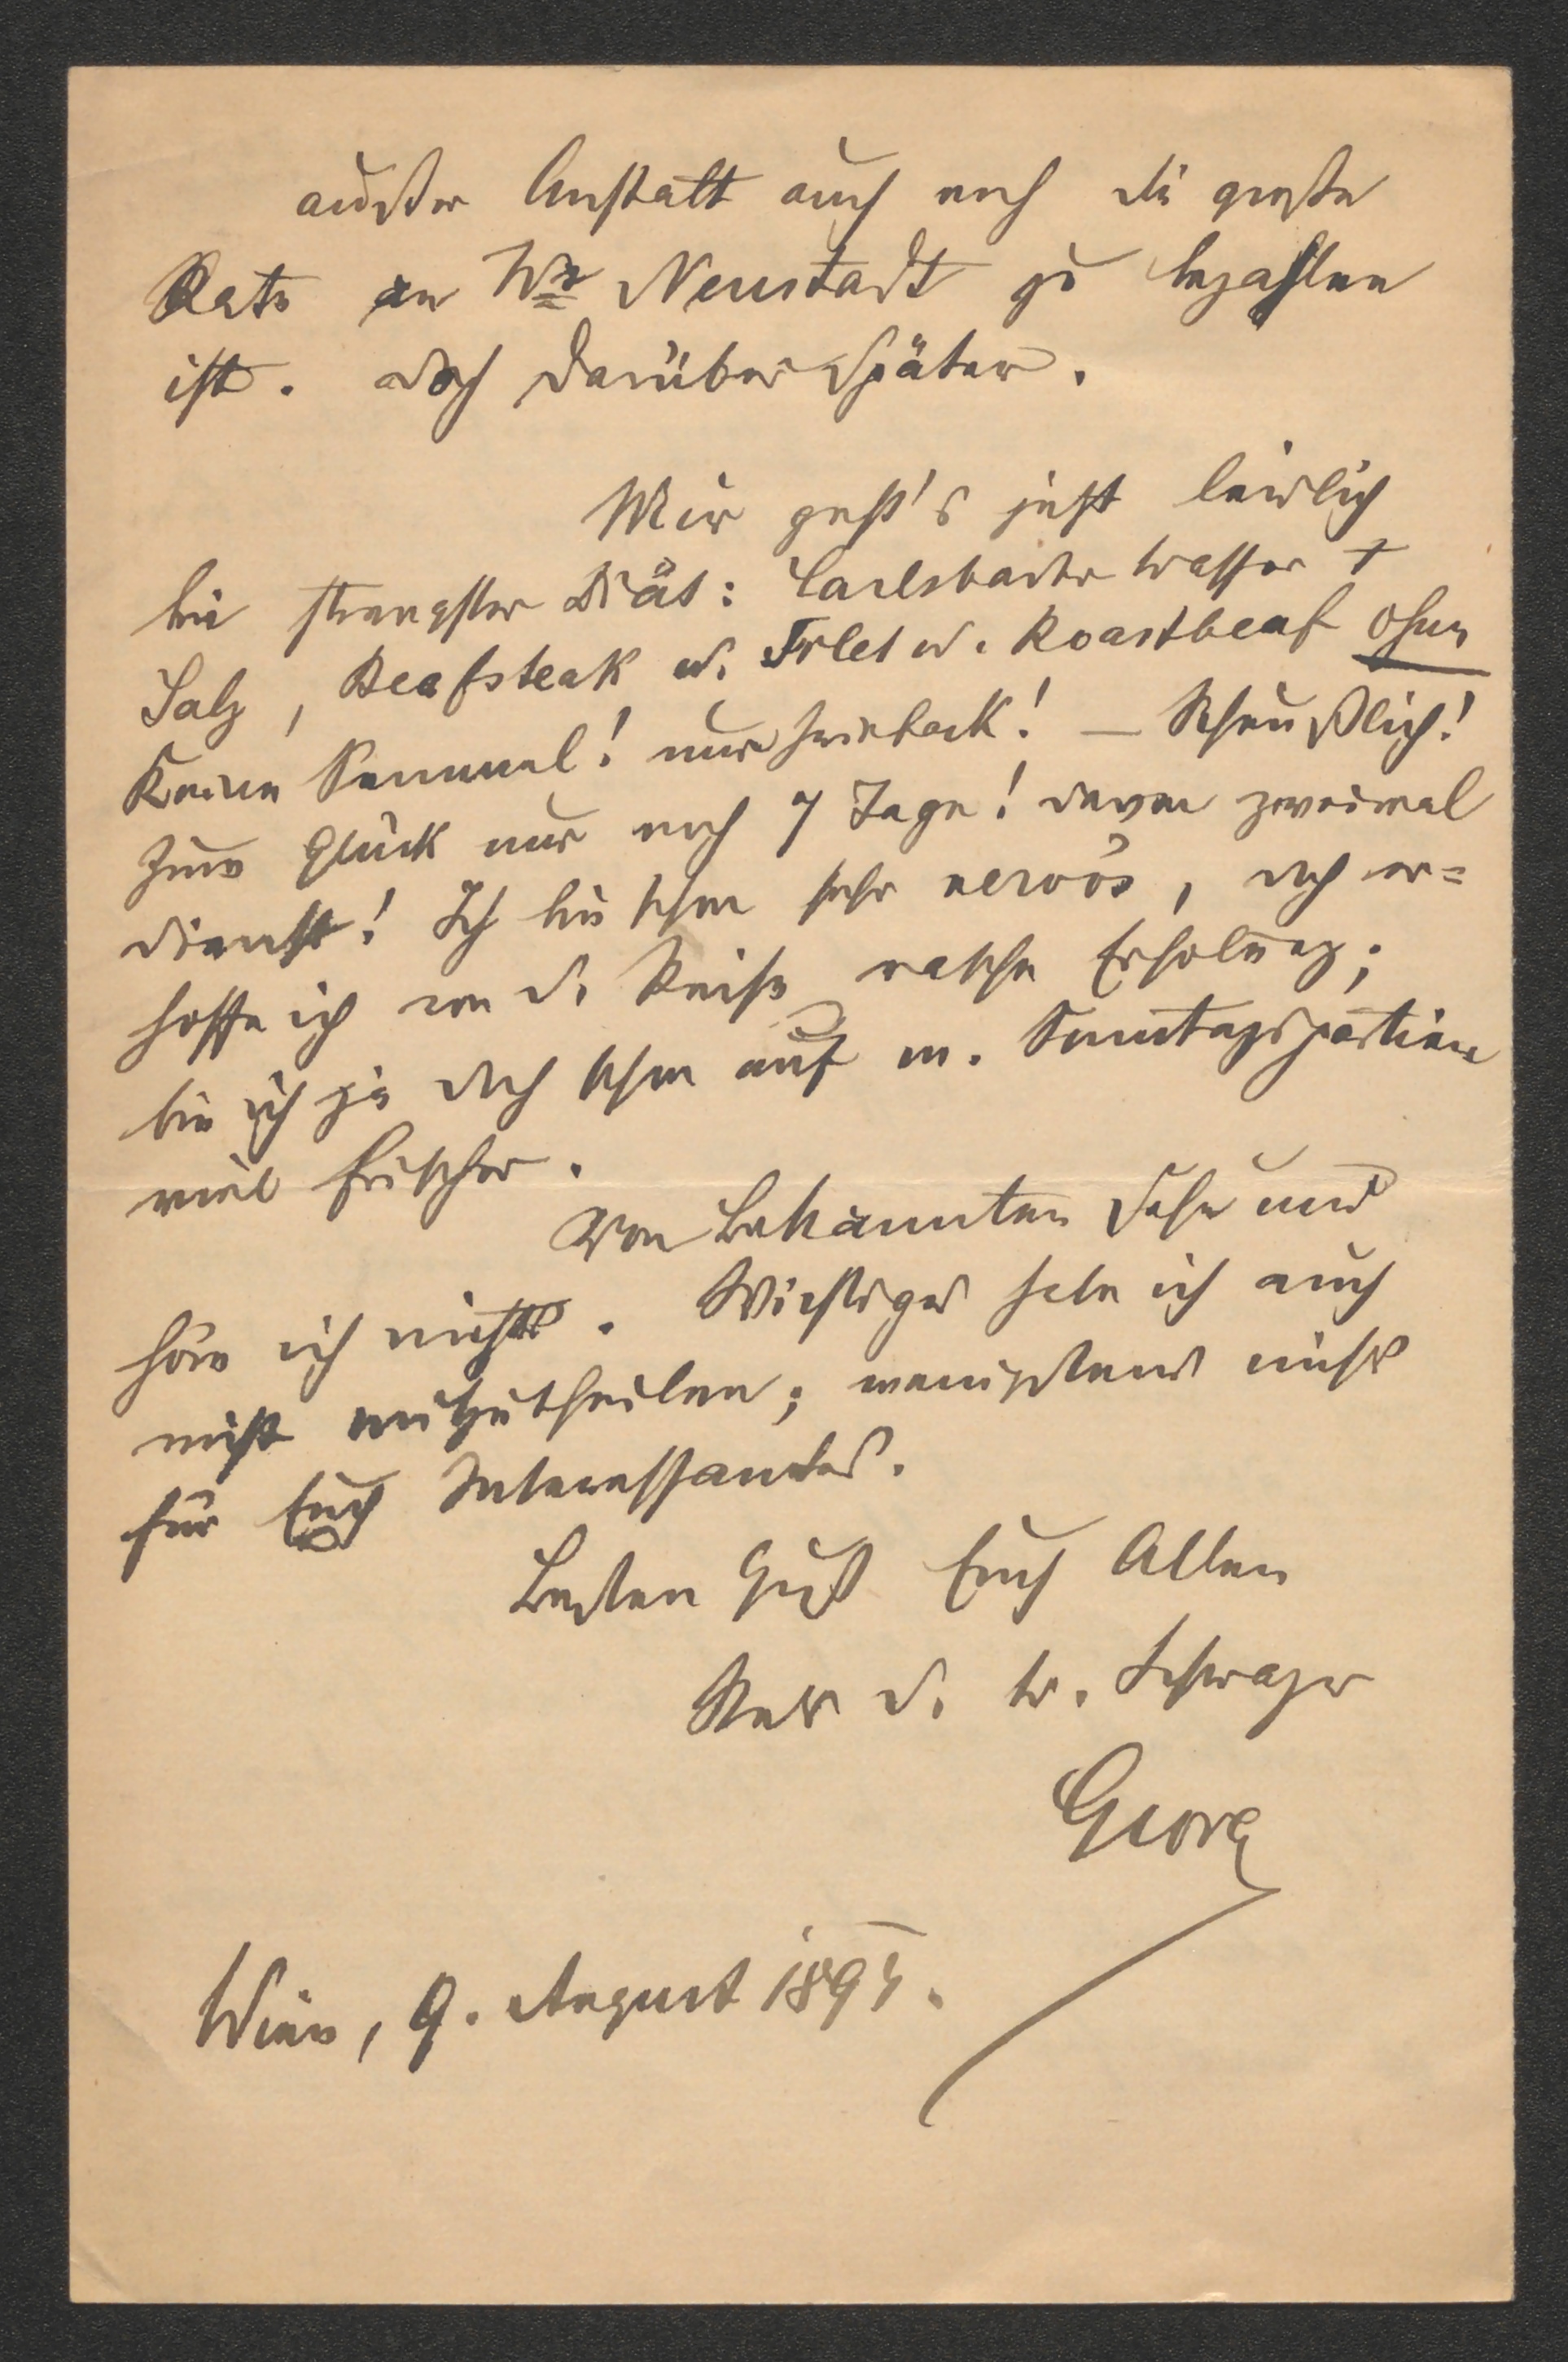 außer Anstalt auch noch die große
Rate an Wr Neustadt zu bezahlen
ist. doch darüber später.
Mir geht's jetzt leidlich
bei strengster Diät: Carlsbader Wasser +
Salz, Beafsteak u. Filet u. Roastbeaf ohne
Keine Semmel! nur Zwieback! — Scheußlich!
Zum Glück nur noch 7 Tage! davon zweimal
Dienst! Ich bin schon sehr nervös, doch er=
hoffe ich von d. Reise rasche Erholung;
bin ich ja doch schon auf m. Sonntagspartien
viel frischer.
Von Bekannten sehe und
höre ich nichts. Wichtiges habe ich auch
nicht mitzutheilen; wenigstens nichts
für Euch Interessantes.
Besten Gruß Euch Allen
d. tr. Schwager
Georg
Wien, 9. August 189